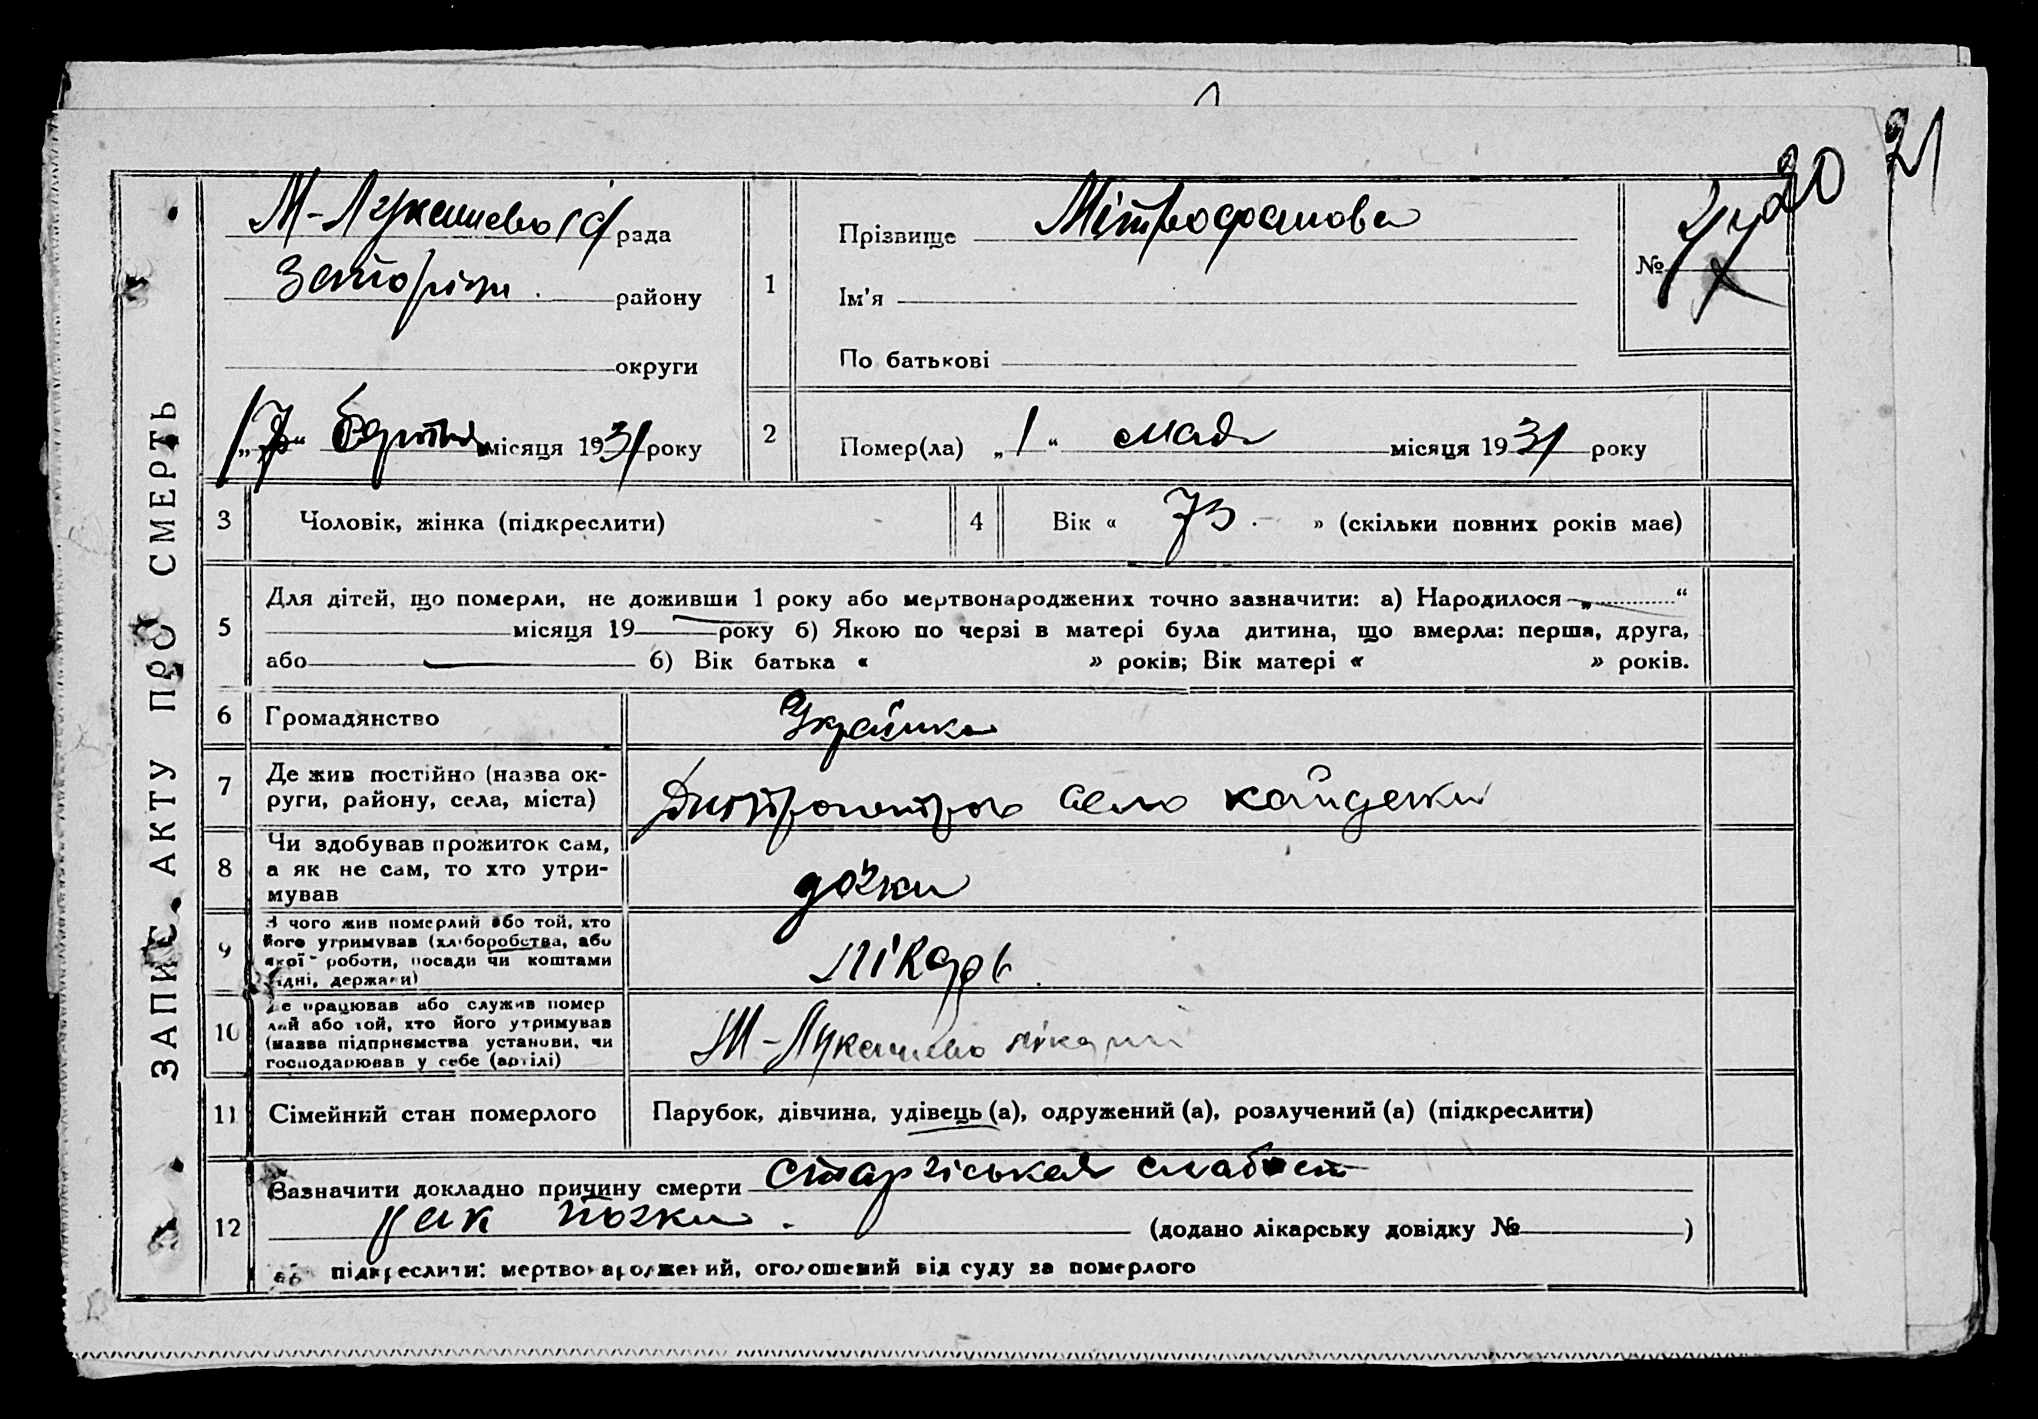 20 21
М-Лукашево с/ рада
Запоріжж. району
округи
місяця 1931 року
ЗАПИС АКТУ ПРО СМЕРТЬ
1
Прізвище Мітрофанова
Ім'я
По батькові
№
2
Помер(ла) „1“ мая місяця 1931 року
3 Чоловік, жінка (підкреслити)
4 Вік « 73 » (скільки повних років має)
5
Для дітей, що померли, не доживши 1 року або мертвонароджених точно зазначити: а) Народилося „ “
місяця 19 року б) Якою по черзі в матері була дитина, що вмерла: перша, друга,
або б) Вік батька « » років; Вік матері « » років.
6 Громадянство Українка
7
Де жив постійно (назва ок-
руги, району, села, міста)
село кайдаки
8
Чи здобував прожиток сам,
а як не сам, то хто утри-
мував
дочки
9
З чого жив померлий або той, хто
його утримував (хліборобства, або
якої роботи, посади чи коштами
рідні, держави)
лікарь
10
Де працював або служив помер
лий або той, хто його утримував
(назва підприємства установи, чи
господарював у себе (артілі)
М-Лукашево
11 Сімейний стан померлого
Парубок, дівчина, удівець (а), одружений (а), розлучений (а) (підкреслити)
12
Зазначити докладно причину смерти старчіськая слабост
рак почки. (додано лікарську довідку № )
або підкреслити: мертвонароджений, оголошений від суду за померлого